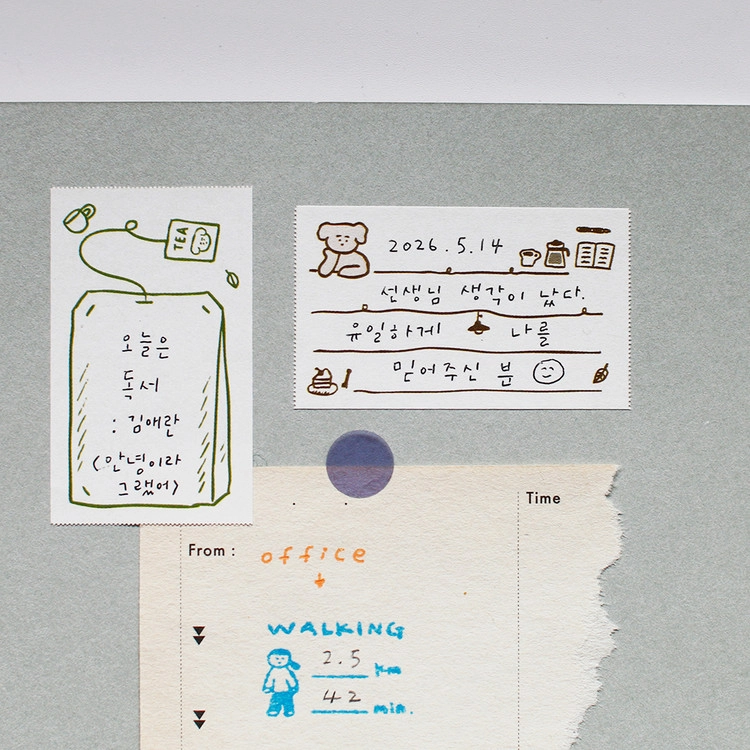 TEA
오늘은
독서
: 김애란
<안녕이라
그랬어>
2026.5.14
선생님 생각이 났다.
유일하게 나를
믿어주신 분
Time
From :
office
WALKING
2.5 km
42 min.